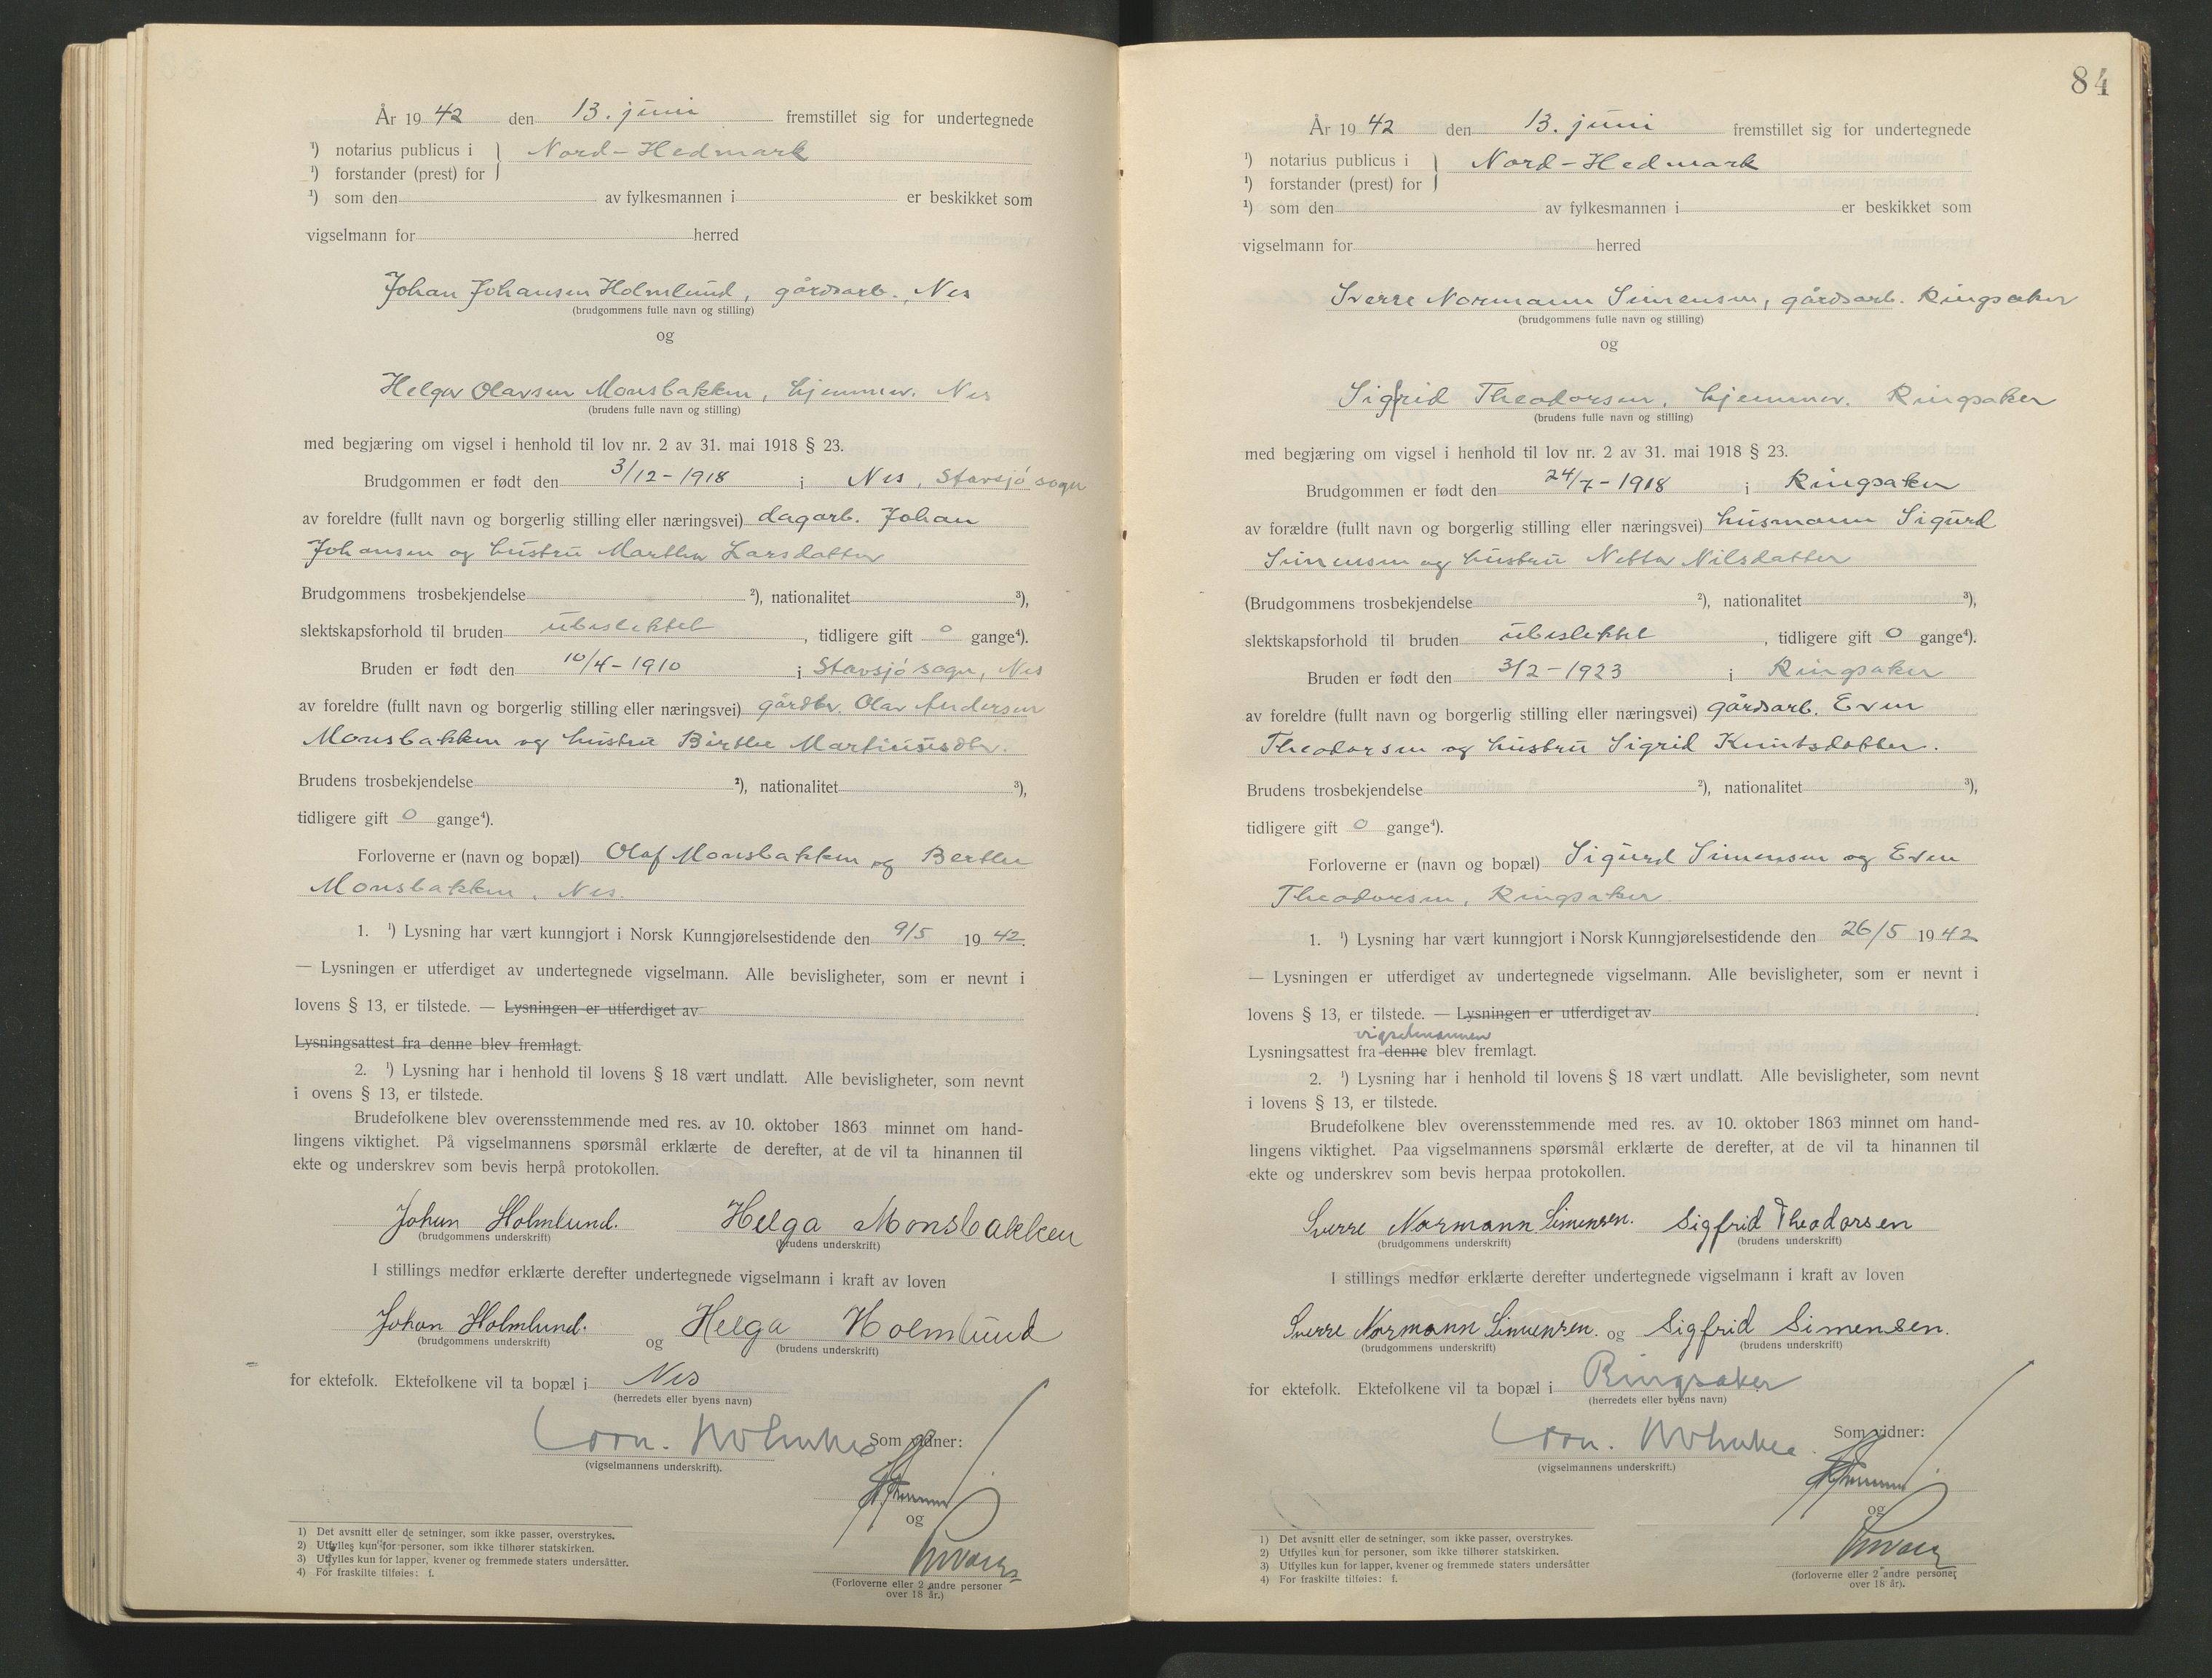 År 19 42 den 13. juni fremstillet sig for undertegnede
¹) notarius publicus i Nord-Hedmark
¹) forstander (prest) for
¹) som den av fylkesmannen i er beskikket som
vigselmann for herred
Johan Johansen Holmlund, gårdsarb. Nes
(brudgommens fulle navn og stilling)
og
Helga Olavsen Monsbakken, hjemmev. Nes
(brudens fulle navn og stilling)
med begjæring om vigsel i henhold til lov nr. 2 av 31. mai 1918 § 23.
Brudgommen er født den 3/12-1918 i Nes, Stavsjø sogn
av foreldre (fullt navn og borgerlig stilling eller næringsvei) dagarb. Johan
Johansen og hustru Marthea Larsdatter
Brudgommens trosbekjendelse ²), nationalitet ³),
slektskapsforhold til bruden ubeslektet, tidligere gift 0 gange⁴).
Bruden er født den 10/4-1910 i Stavsjø sogn, Nes
av foreldre (fullt navn og borgerlig stilling eller næringsvei) gårdbr. Olav Andersen
Monsbakken og hustru Birthe Martiniusdtr.
Brudens trosbekjendelse ²), nationalitet ³),
tidligere gift 0 gange⁴).
Forloverne er (navn og bopæl) Olaf Monsbakken og Berthe
Monsbakken, Nes.
1. ¹) Lysning har vært kunngjort i Norsk Kunngjørelsestidende den 9/5 19 42.
— Lysningen er utferdiget av undertegnede vigselmann. Alle bevisligheter, som er nevnt i
lovens § 13, er tilstede. — Lysningen er utferdiget av
Lysningsattest fra denne blev fremlagt.
2. ¹) Lysning har i henhold til lovens § 18 vært undlatt. Alle bevisligheter, som nevnt
i ovens § 13, er tilstede.
Brudefolkene blev overensstemmende med res. av 10. oktober 1863 minnet om hand-
lingens viktighet. På vigselmannens spørsmål erklærte de derefter, at de vil ta hinannen til
ekte og underskrev som bevis herpå protokollen.
Johan Holmlund. Helga Monsbakken
(brudgommens underskrift) (brudens underskrift)
I stillings medfør erklærte derefter undertegnede vigselmann i kraft av loven
Johan Holmlund. og Helga Holmlund
(brudgommens underskrift) (brudens underskrift)
for ektefolk. Ektefolkene vil ta bopæl i Nes
(herredets eller byens navn)
Som vidner:
(vigselmannens underskrift).
og
1) Det avsnitt eller de setninger, som ikke passer, overstrykes.
2) Utfylles kun for personer, som ikke tilhører statskirken.
3) Utfylles kun for lapper, kvener og fremmede staters undersåtter.
4) For fraskilte tilføies: f.
(Forloverne eller 2 andre personer
over 18 år.)
84
År 19 42 den 13. juni fremstillet sig for undertegnede
¹) notarius publicus i Nord-Hedmark
¹) forstander (prest) for
¹) som den av fylkesmannen i er beskikket som
vigselmann for herred
Sverre Normann Simensen, gårdsarb. Ringsaker
(brudgommens fulle navn og stilling)
og
Sigfrid Theodorsen, hjemmev. Ringsaker
(brudens fulle navn og stilling)
med begjæring om vigsel i henhold til lov nr. 2 av 31. mai 1918 § 23.
Brudgommen er født den 24/7-1918 i Ringsaker
av forældre (fullt navn og borgerlig stilling eller næringsvei) husmann Sigurd
Simensen og hustru Netta Nilsdatter
(Brudgommens trosbekjendelse ²), nationalitet ³),
slektskapsforhold til bruden ubeslektet, tidligere gift 0 gange⁴).
Bruden er født den 3/2-1923 i Ringsaker
av foreldre (fullt navn og borgerlig stilling eller næringsvei) gårdsarb. Even
Theodorsen og hustru Sigrid Knutsdatter.
Brudens trosbekjendelse ²), nationalitet ³),
tidligere gift 0 gange⁴).
Forloverne er (navn og bopæl) Sigurd Simensen og Even
Theodorsen, Ringsaker.
1. ¹) Lysning har vært kunngjort i Norsk Kunngjørelsestidende den 26/5 19 42
— Lysningen er utferdiget av undertegnede vigselmann. Alle bevisligheter, som er nevnt i
lovens § 13, er tilstede. — Lysningen er utferdiget av
vigselmannen
Lysningsattest fra denne blev fremlagt.
2. ¹) Lysning har i henhold til lovens § 18 vært undlatt. Alle bevisligheter, som nevnt
i lovens § 13, er tilstede.
Brudefolkene blev overensstemmende med res. av 10. oktober 1863 minnet om hand-
lingens viktighet. Paa vigselmannens spørsmål erklærte de derefter, at de vil ta hinannen til
ekte og underskrev som bevis herpaa protokollen.
Sverre Normann Simensen. Sigfrid Theodorsen
(brudgommens underskrift) (brudens underskrift)
I stillings medfør erklærte derefter undertegnede vigselmann i kraft av loven
Sverre Normann Simensen. og Sigfrid Simensen.
(brudgommens underskrift) (brudens underskrift)
for ektefolk. Ektefolkene vil ta bopæl i Ringsaker
(herredets eller byens navn)
Som vidner:
(vigselmannens underskrift.)
og
1) Det avsnitt eller de setninger, som ikke passer, overstrykes.
2) Utfylles kun for personer, som ikke tilhører statskirken.
3) Utfylles kun for lapper, kvener og fremmede staters undersåtter
4) For fraskilte tilføies: f.
(forloverne eller 2 andre personer
over 18 år).